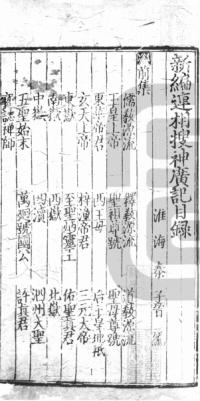 新編連相搜神廣記目錄
淮海秦子晉
前集
儒教源流 釋教源流 道教源流
玉皇上帝 聖祖尊號 聖母尊號
東華帝君 西王母 后土皇地祇
玄天上帝 梓潼帝君 三元大帝
東嶽 至聖炳靈王 佑聖真君
南嶽 西嶽 北嶽
中嶽 四瀆 泗州大聖
五聖始末 萬迴虢國公 許真君
寶誌禪師